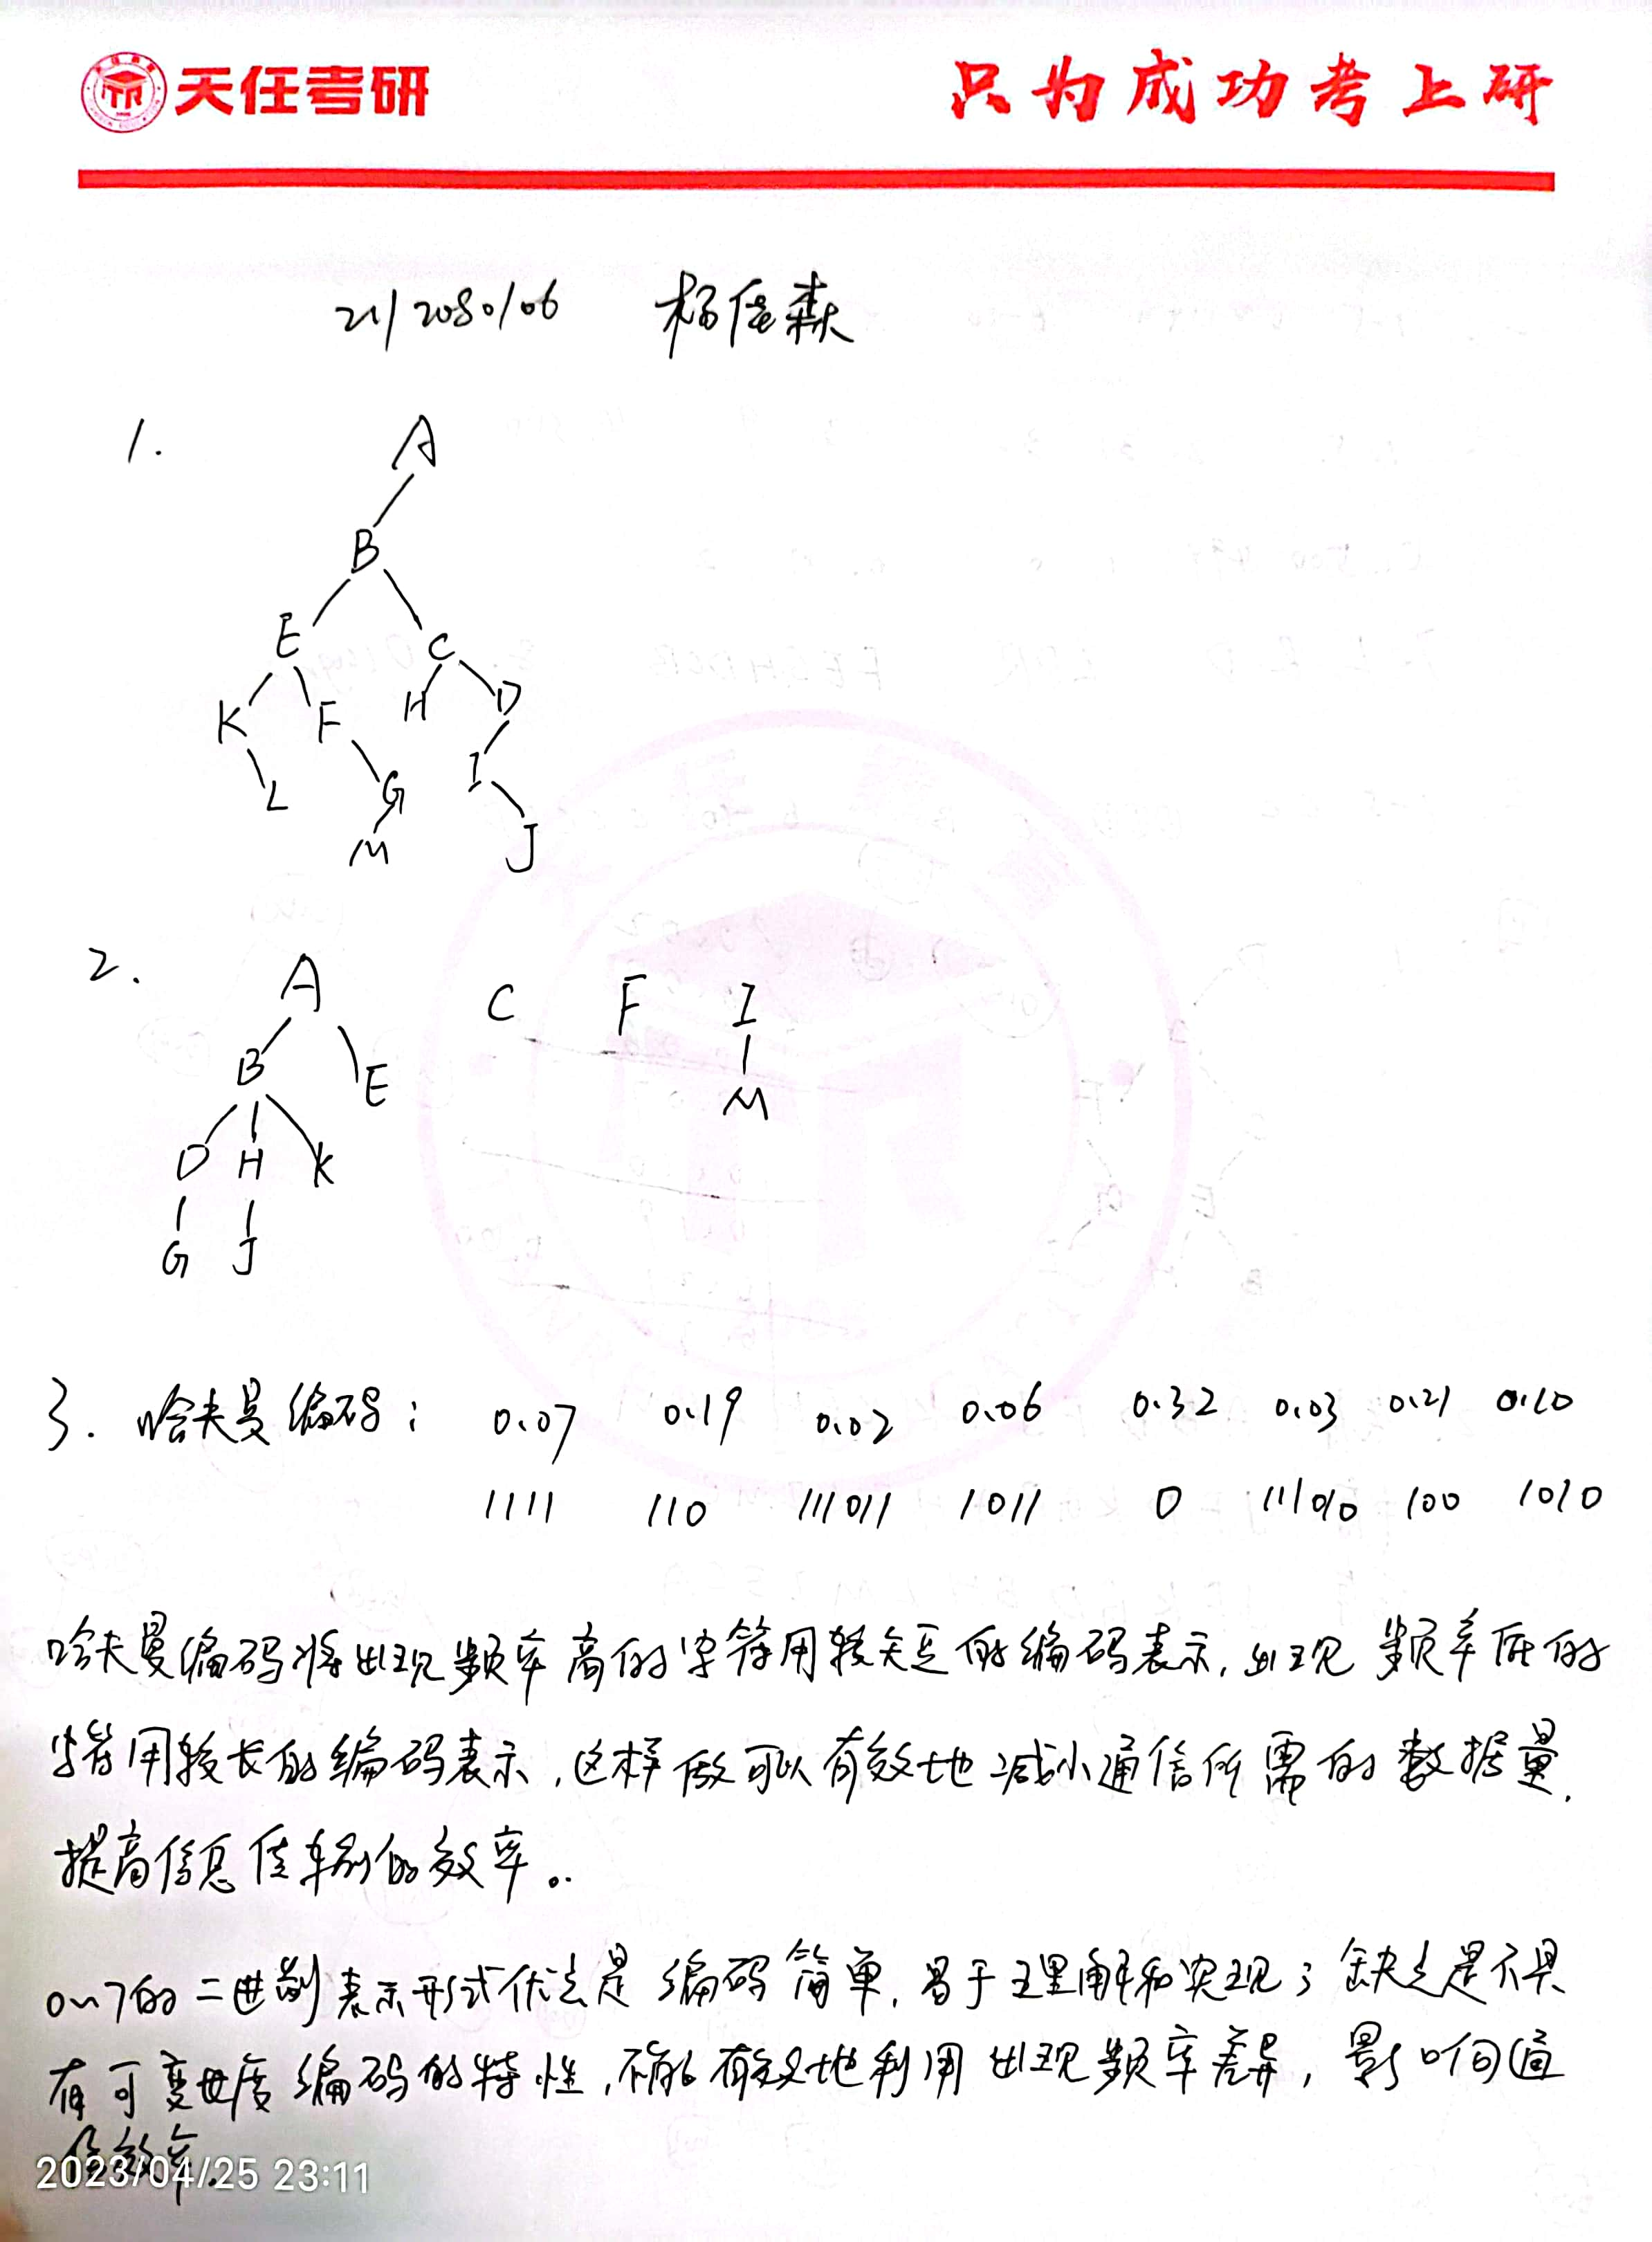 天任考研 只为成功考上研
21/2080/06 杨佳森
1.
A
B
E C
K F H D
L G I
M J
2.
A C F I
B E M
D H K
G J
3. 哈夫曼编码: 0.07 0.19 0.02 0.06 0.32 0.03 0.21 0.10
1111 110 111011 1011 0 111010 100 1010
哈夫曼编码将出现频率高的字符用较短的编码表示,出现频率低的
字符用较长的编码表示,这样做可以有效地减小通信所需的数据量,
提高信息传输的效率。
0~7的二进制表示形式优点是编码简单,易于理解和实现;缺点是不具
有可变长度编码的特性,不能有效地利用出现频率差异,影响通
信效率.
2023/04/25 23:11